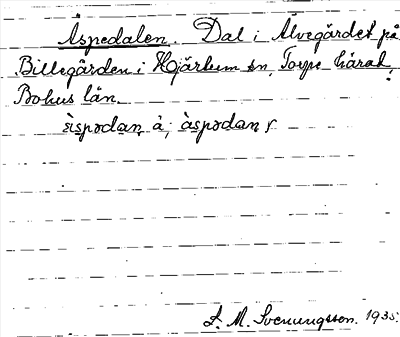 Åspedalen. Dal i Älvegärdet på
Billegården i Hjärtum sn, Torpe härad,
Bohus län.
àspədan, å; àspədan,
L. M. Svenungsson. 1935.